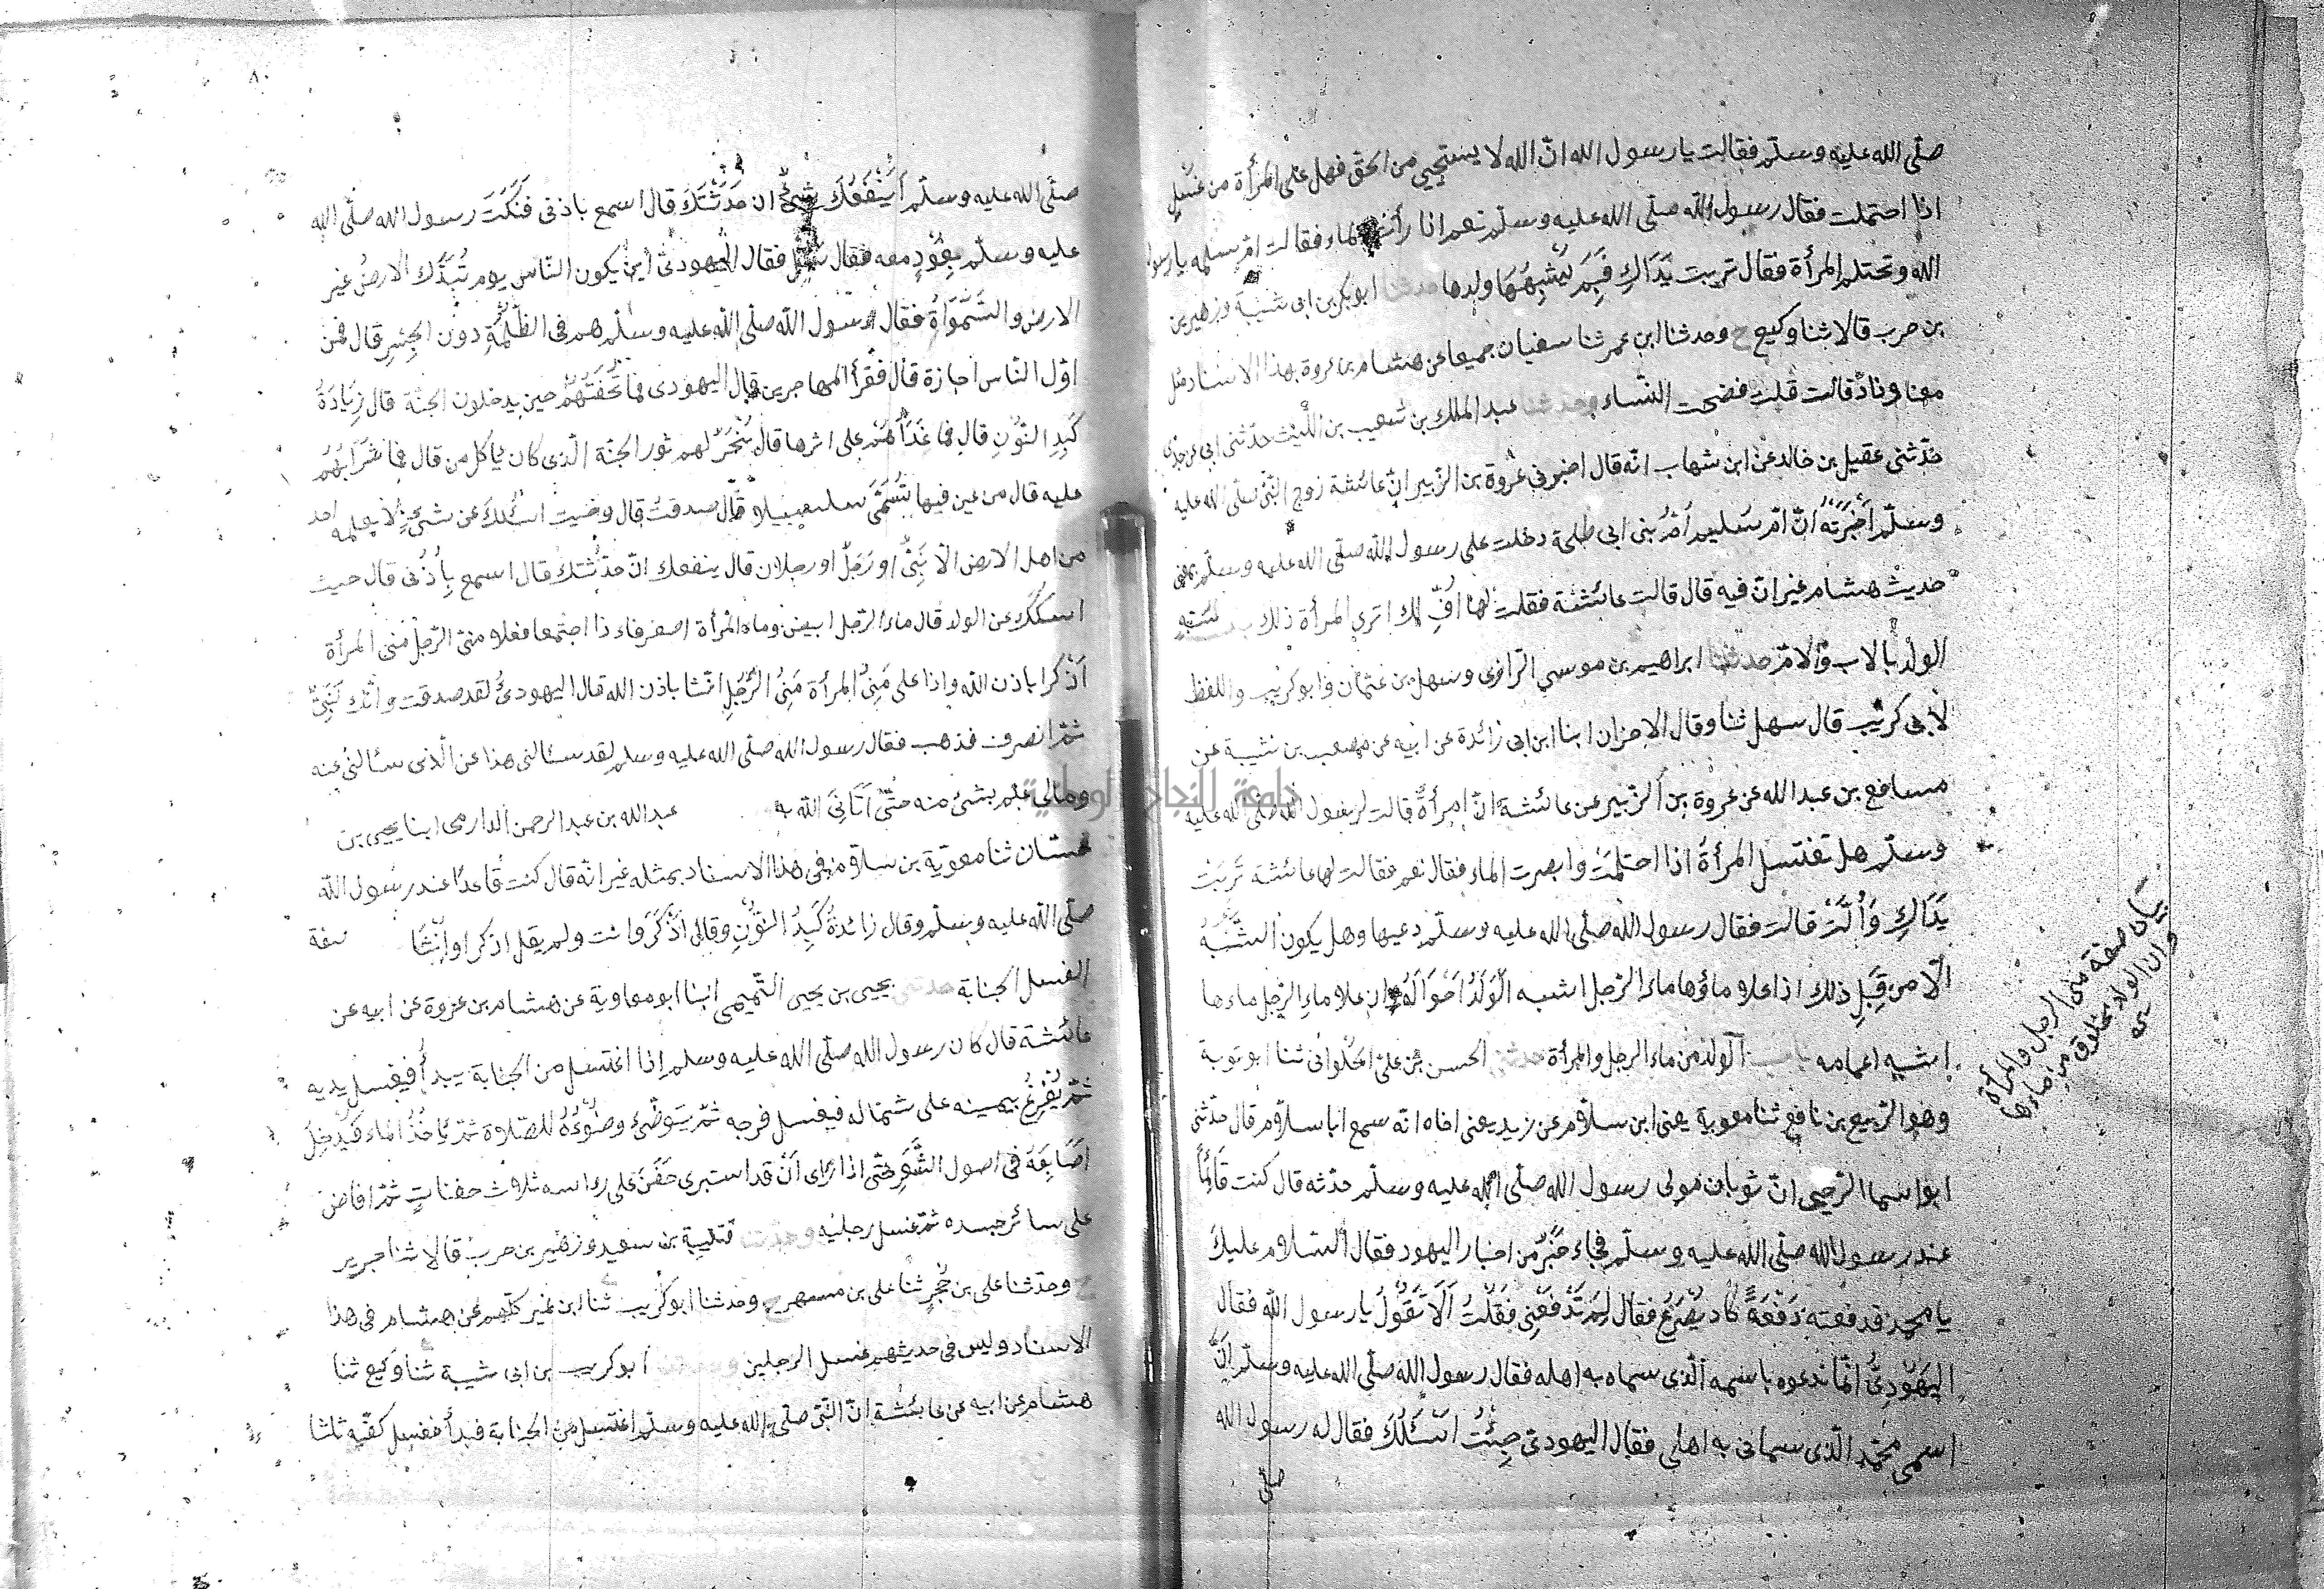 صلّى الله عليه وسلّم فقالت يا رسول الله انّ الله لا يستحيي من الحقّ فهل على المرأة من غسل
اذا احتملت فقال رسول الله صلّى الله عليه وسلّم نعم اذا رأت الماء فقالت امّ سلمه يا رسول
الله وتحتلم المرأة فقال تربت يَدَاكِ فَبِمَ يُشْبِهُهَا ولدها حدثنا ابوبكر بن ابى شيبة وزهير بن
بن حرب قالا ثنا وكيع ح وحدثنا ابن عمر ثنا سفيان جميعا عن هشام بن عروة بهذا الاسناد مثل
معناه وزاد قالت قلت فضحت النّساء وحدثنا عبد الملك بن شعيب بن اللّيث حدّثنى ابى عن جدّى
حدّثنى عقيل بن خالد عن ابن شهاب انّه قال اخبرنى عُروة بن الزّبير انّ عائشة زوج النّبىّ صلّى الله عليه
وسلّم اَخْبَرَتْهُ انّ امّ سُليم اُمّ بنى ابى طلحة دخلت على رسول الله صلّى الله عليه وسلّم بمعنى
حديث هشام غير انّ فيه قال قالت عائشة فقلت لها اُفٍّ لك اترى المرأة ذلك
الولد بالاب والامّ حدثنا ابراهيم بن موسى الرّازى وسهل بن عثمان وابو كريب واللفظ
لابى كريب قال سهل ثنا وقال الاخران ابنا ابن ابى زائدة عن ابيه عن مصعب بن شيبة عن
مسافع بن عبد الله عن عروة بن الزّبير عن عائشة انّ امرأةً قالت لرسول الله صلى الله عليه
وسلّم هل تغتسل المرأةُ اذا احتلمَتْ وابصرت الماء فقال نعم فقالت لها عائشة تَرِبَتْ
يَدَاكِ وَأُلَّتْ قالت فقال رسول الله صلّى الله عليه وسلّم دعيها وهل يكون الشَّبَهُ
الّا من قِبَلِ ذلك اذا علا ماؤها ماءَ الرّجل اشبه الْوَلَدُ اَخْوَالَهُ وان علا ماء الرّجل ماءها
اشبه اعمامه باب الولد من ماء الرجل والمرأة حدثنى الحسن بن علىّ الحلوانى ثنا ابو توبة
وهو الرّبيع بن نافع ثنا معوية يعنى ابن سلّام عن زيد يعنى اخاه انّه سمع ابا سلّام قال حدّثنى
ابو اسما الرّحبى انّ ثوبان مولى رسول الله صلّى الله عليه وسلّم حدّثه قال كنت قَائِمًا
عند رسول الله صلّى الله عليه وسلّم فجاء حَبْرٌ من احبار اليهود فقال السّلام عليك
يا محمد فدفعته دَفْعَةً كاد يُصْرَعُ فقال لِمَ تَدْفَعُنِى فَقُلْتُ اَلَا تَقُولُ يا رسول الله فقال
اليَهُودِىُّ انّما ندعوه باسمه الّذى سماه به اهله فقال رسول الله صلّى الله عليه وسلّم انّ
اسمى محمّد الّذى سمانى به اهلى فقال اليهودىّ جِئْتُ اَسْئَلُكَ فقال له رسول الله
صلّى
بيان صفة منى الرجل والمرأة
وان الولد مخلوق من ماءهما
٨٠
صلّى الله عليه وسلّم اَيَنْفَعُكَ شَىْءٌ ان حَدَّثْتُكَ قال اسمع باذنى فَنَكَتَ رسول الله صلّى الله
عليه وسلّم بِعُوْدٍ معه فقال سَلْ فقال اليهودىّ اين يكون النّاس يوم تُبَدَّلُ الارضُ غير
الارض والسَّمٰوَاتُ فقال رسول الله صلّى الله عليه وسلّم هم فى الظُّلْمَةِ دون الجِسْرِ قال فمن
اوّل النّاس اجازة قال فقرأ المهاجرين قال اليهودى فما تُحْفَتُهُمْ حين يدخلون الجنّة قال زِيَادَةُ
كَبِدِ النُّونِ قال فما غَدَاؤُهُمْ على اثرها قال يُنْحَرُ لهم ثور الجنّة الّذى كان ياكل من قال فما شَرَابُهُمْ
عليه قال من عين فيها تُسَمَّى سلسبيلا قال صدقت قال وجئت اسئلك عن شىءٍ لا يعلمه احد
من اهل الارض الّا نَبِىٌّ او رَجُلٌ او رجلان قال ينفعك انّ حدّثتك قال اسمع بِاُذُنى قال جئت
اسئلك عن الولد قال ماء الرّجل ابيض وماء المرأة اصفر فاءذا اجتمعا فعلا منىّ الرّجل مَنى المرأة
اَذْكَرا باذن الله واذا على مَنِىُّ المرأة مَنِىَّ الرَّجُلِ انثا باذن الله قال اليهودىّ لقد صدقت وانّك لَنَبِىٌّ
ثمّ انصرف فذهب فقال رسول الله صلّى الله عليه وسلم لقد سئالنى هذا عن الّذى سئالنى عنه
ومالى علم بشئ منه حتّى اَتَانِىَ الله به عبد الله بن عبد الرحمن الدارمى ابنا يحيى بن
حسّان ثنا معوية بن سلاّم فى هذا الاسناد بمثله غير انّه قال كنت قاعدًا عند رسول الله
صلّى الله عليه وسلّم وقال زائدةُ كَبِدِ النُّونِ وقال اَذْكَرَ وانث ولم يقل اذكرا وانثا صفة
الغسل الجنابة حدثنى يحيى بن يحيى التّميمى انبنا ابو معاوية عن هشام بن عروة عن ابيه عن
عائشة قال كان رسول الله صلّى الله عليه وسلم اذا اغتسل من الجنابة يبدأ فيغسل يديه
ثمّ يُفْرِغُ بيمينه على شماله فيغسل فرجه ثمّ يتوضّئ وضُوْءَهُ للصّلاة ثمّ ياخُذُ الماء فيُدخِلُ
اَصَابِعَهُ فى اصول الشَّعَرِ حتّى اذا راى اَنْ قد استبرى حَفَنَ على رءاسه ثلاث حفناتٍ ثمّ افاض
على سائر جسده ثمّ غسل رجليه وحدثنا قتيبة بن سعيد وزهير بن حرب قالا ثنا جرير
ح وحدّثنا على بن حُجْرٍ ثنا على بن مسهر ح وحدثنا ابو كريب ثنا ابن نمير كلّهم عن هشام فى هذا
الاسناد وليس فى حديثهم غسل الرجلين ابو كريب بن ابى شيبة ثنا وكيع ثنا
هشام عن ابيه عن عائشة انّ النّبّى صلّى الله عليه وسلّم اغتسل من الجنابة فبدأ فغسل كفّيه ثلثا
جامعة النجاح الوطنية